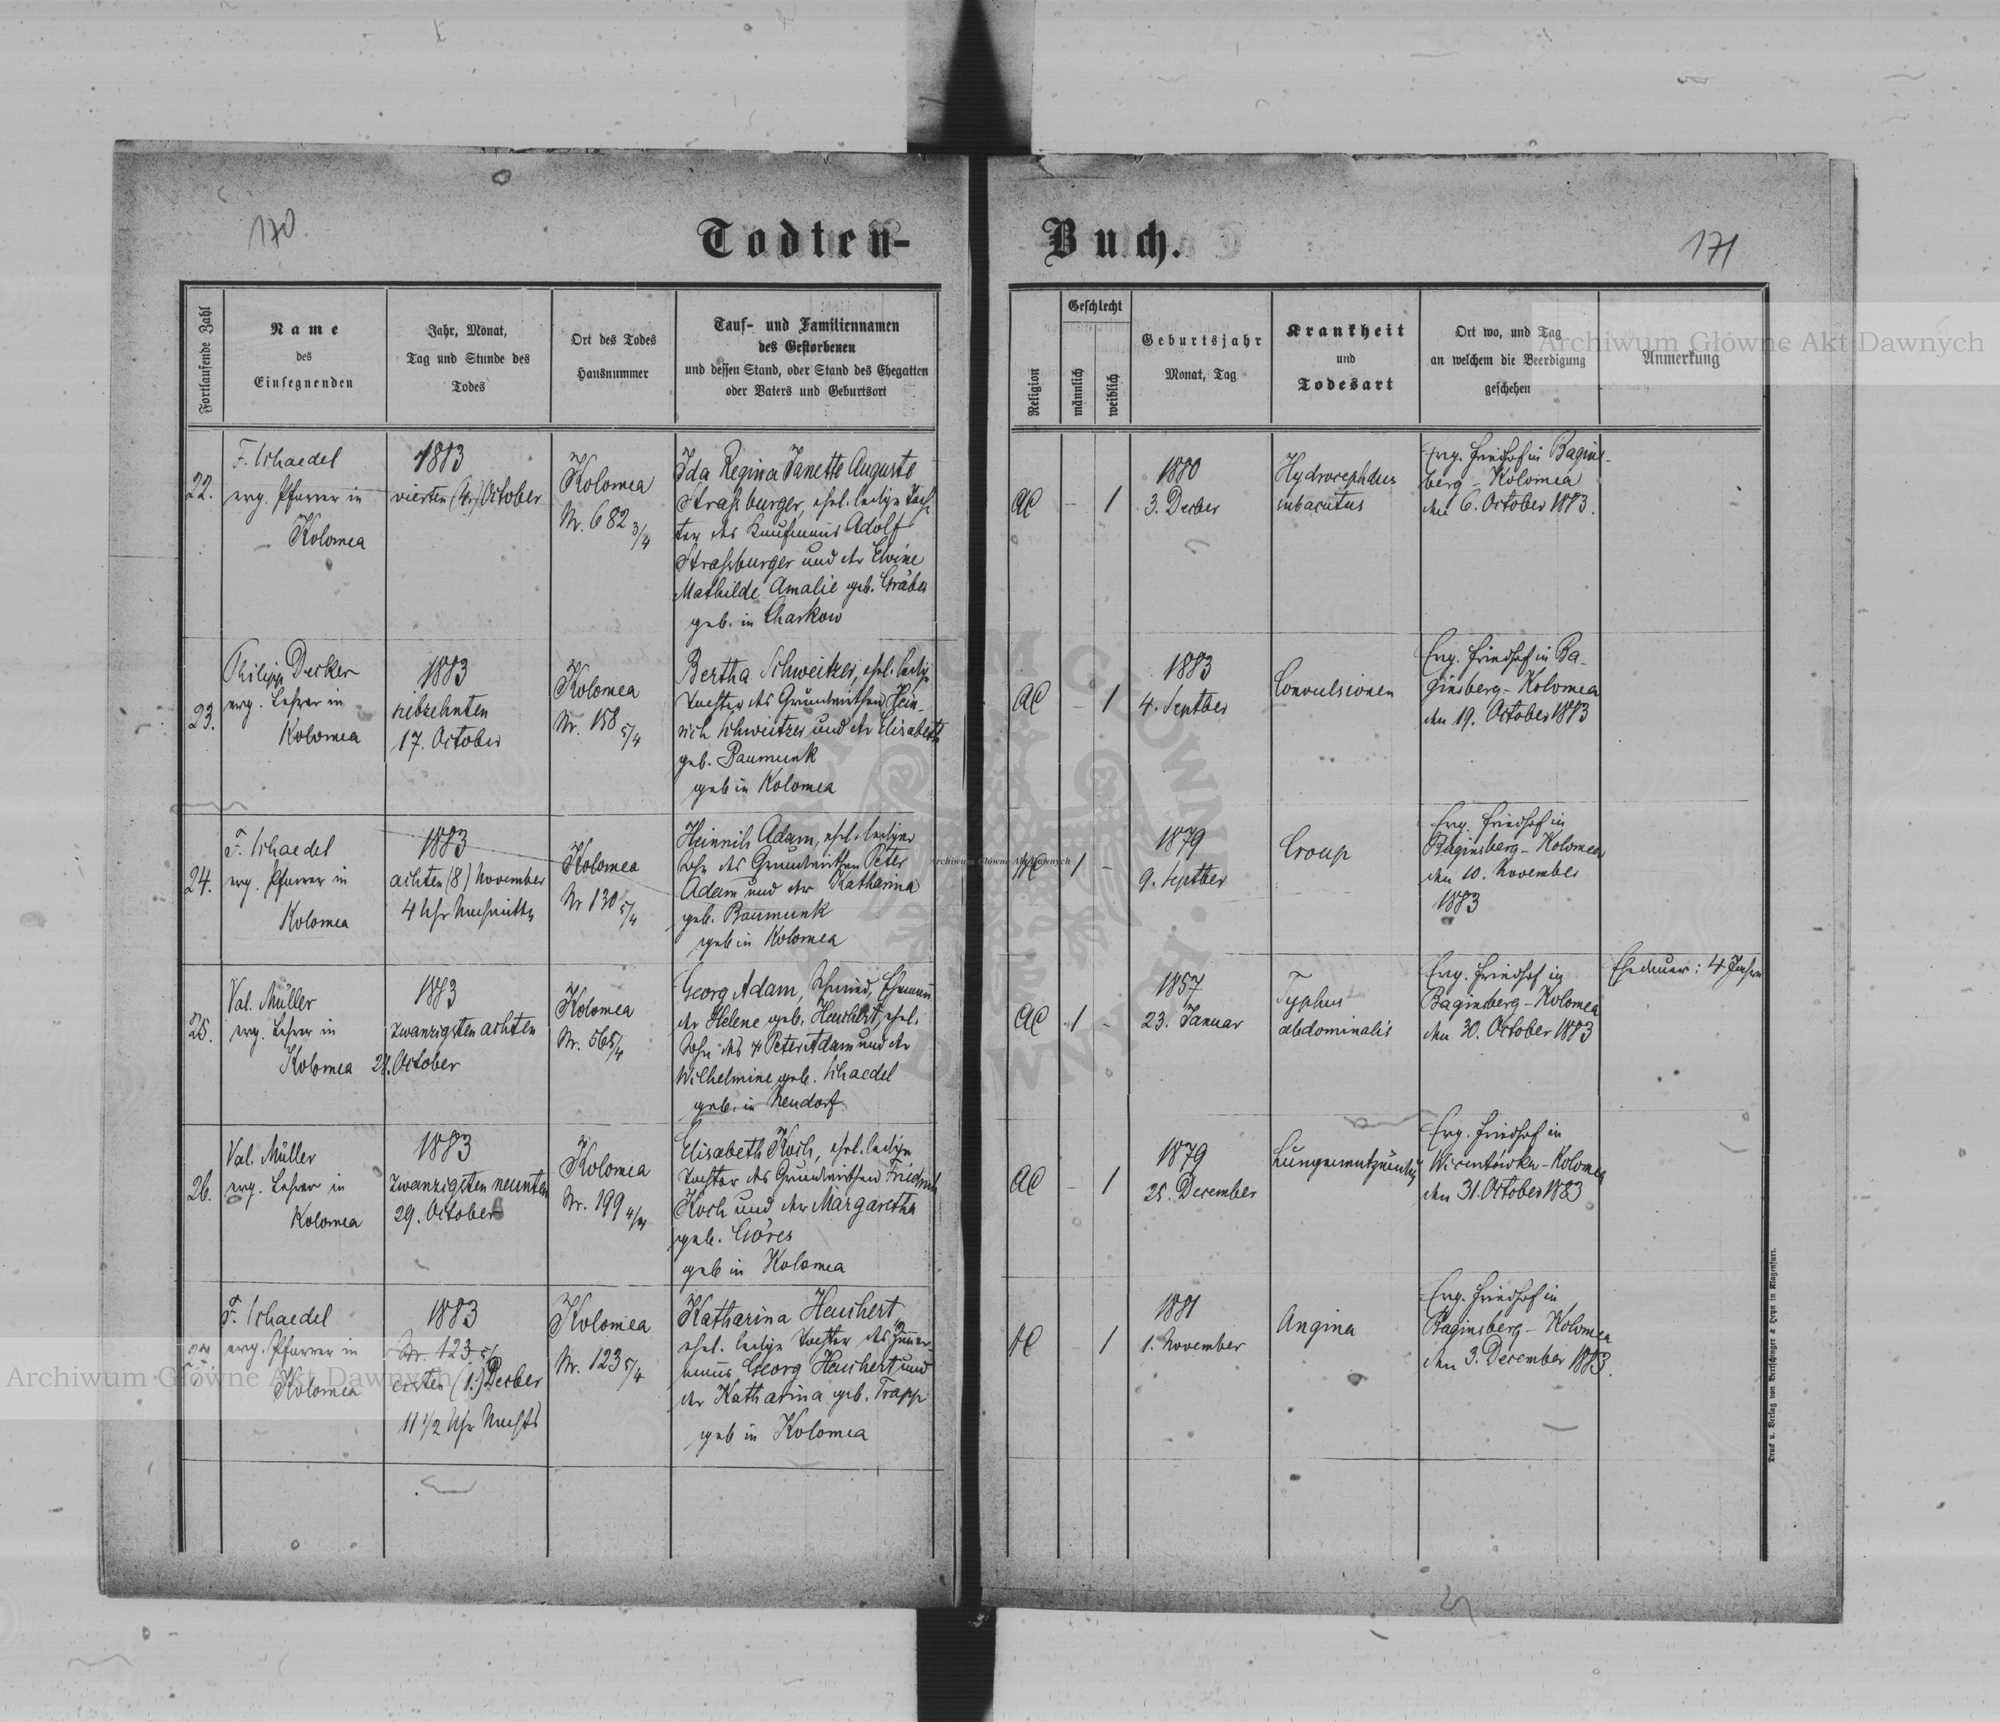 170
Todten-
Buch.
171
Fortlaufende Zahl
Name
des
Einsegnenden
Jahr, Monat,
Tag und Stunde des
Todes
Ort des Todes
Hausnummer
Tauf- und Familiennamen
des Gestorbenen
und dessen Stand, oder Stand des Ehegatten
oder Vaters und Geburtsort
Religion
Geschlecht
männlich
weiblich
Geburtsjahr
Monat, Tag
Krankheit
und
Todesart
Ort wo, und Tag
an welchem die Beerdigung
geschehen
Anmerkung
22.
F. Schaedel
erg. Pfarrer in
Kolomea
1883
vierten (4.) October
Kolomea
Nr. 682 3/4
Ida Regina Janette Auguste
Straßburger, ehel. ledige Toch-
ter des Kaufmanns Adolf
Straßburger und der Elvine
Mathilde Amalie geb. Gräber
geb. in Charkow
AC
-
1
1880
3. Decber
Hydrocephalus
subacutus
Evg. Friedhof in Bagins-
berg - Kolomea
den 6. October 1883.
23.
Philipp Decker
evg. Lehrer in
Kolomea
1883
siebzehnten
17. October
Kolomea
Nr. 158 5/4
Bertha Schweitzer, ehel. ledige
Tochter des Grundwirthen Hein-
rich Schweitzer und der Elisabeth
geb. Baumunk
geb in Kolomea
AC
-
1
1883
4. Septber
Convulsionen
Evg. Friedhof in Ba-
ginsberg - Kolomea
den 19. October 1883
24.
F. Schaedel
evg. Pfarrer in
Kolomea
1883
achten (8) November
4 Uhr Nachmittg
Kolomea
Nr 130 5/4
Heinrich Adam, ehel. lediger
Sohn des Grundwirthen Peter
Adam und der Katharina
geb. Baumunk
geb in Kolomea
AC
1
-
1879
9. Septber
Croup
Evg. Friedhof in
Baginsberg - Kolomea
den 10. November
1883
25.
Val. Müller
evg. Lehrer in
Kolomea
1883
zwanzigsten achten
28. October
Kolomea
Nr. 565/4
Georg Adam, Schmied, Ehemann
der Helene geb. Heuchert, ehel.
Sohn des + Peter Adam und der
Wilhelmine geb. Schaedel
geb. in Neudorf
AC
1
-
1857
23. Januar
Typhus
abdominalis
Evg. Friedhof in
Baginsberg - Kolomea
den 30. October 1883
Ehedauer: 4 Jahre
26.
Val. Müller
evg. Lehrer in
Kolomea
1883
zwanzigsten neunten
29. October
Kolomea
Nr. 199 4/4
Elisabeth Koch, ehel. ledige
Tochter des Grundwirthen Friedrich
Koch und der Margaretha
geb. Göres
geb in Kolomea
AC
-
1
1879
25. December
Lungenentzündung
Evg. Friedhof in
Wincentówka - Kolomea
den 31. October 1883
27.
F. Schaedel
evg. Pfarrer in
Kolomea
1883
Nr. 123 5/
ersten (1.) Decber
11 1/2 Uhr Nachts
Kolomea
Nr. 123 5/4
Katharina Heuchert,
ehel. ledige Tochter des Zimmer-
manns Georg Heuchert und
der Katharina geb. Trapp
geb in Kolomea
AC
1
1881
1. November
Angina
Evg. Friedhof in
Baginsberg - Kolomea
den 3. December 1883.
Druck u. Verlag von Bertschinger & Heyn in Klagenfurt.
Archiwum Główne Akt Dawnych
Archiwum Główne Akt Dawnych
Archiwum Główne Akt Dawnych